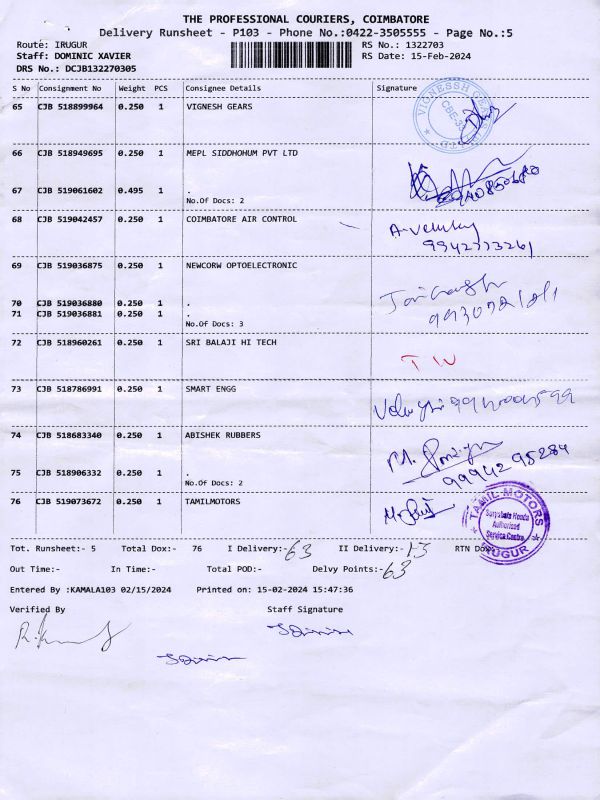 THE PROFESSIONAL COURIERS, COIMBATORE
Delivery Runsheet - P103 - Phone No.:0422-3505555 - Page No.:5
Route: IRUGUR RS No.: 1322703
Staff: DOMINIC XAVIER RS Date: 15-Feb-2024
DRS No.: DCJB132270305
S No Consignment No Weight PCS Consignee Details Signature
65 CJB 518899964 0.250 1 VIGNESH GEARS
VIGNESSH GEARS
66 CJB 518949695 0.250 1 MEPL SIDDHOHUM PVT LTD
67 CJB 519061602 0.495 1 .
No.Of Docs: 2
68 CJB 519042457 0.250 1 COIMBATORE AIR CONTROL
9942773261
69 CJB 519036875 0.250 1 NEWCORW OPTOELECTRONIC
70 CJB 519036880 0.250 1 .
71 CJB 519036881 0.250 1 .
No.Of Docs: 3
72 CJB 518960261 0.250 1 SRI BALAJI HI TECH
73 CJB 518786991 0.250 1 SMART ENGG
74 CJB 518683340 0.250 1 ABISHEK RUBBERS
75 CJB 518906332 0.250 1 .
99942 95284
No.Of Docs: 2
76 CJB 519073672 0.250 1 TAMILMOTORS
TAMIL MOTORS
Authorised
Service Centre
IRUGUR
Tot. Runsheet:- 5 Total Dox:- 76 I Delivery:- 63 II Delivery:- 13 RTN
Out Time:- In Time:- Total POD:- Delvy Points:- 63
Entered By :KAMALA103 02/15/2024 Printed on: 15-02-2024 15:47:36
Verified By Staff Signature